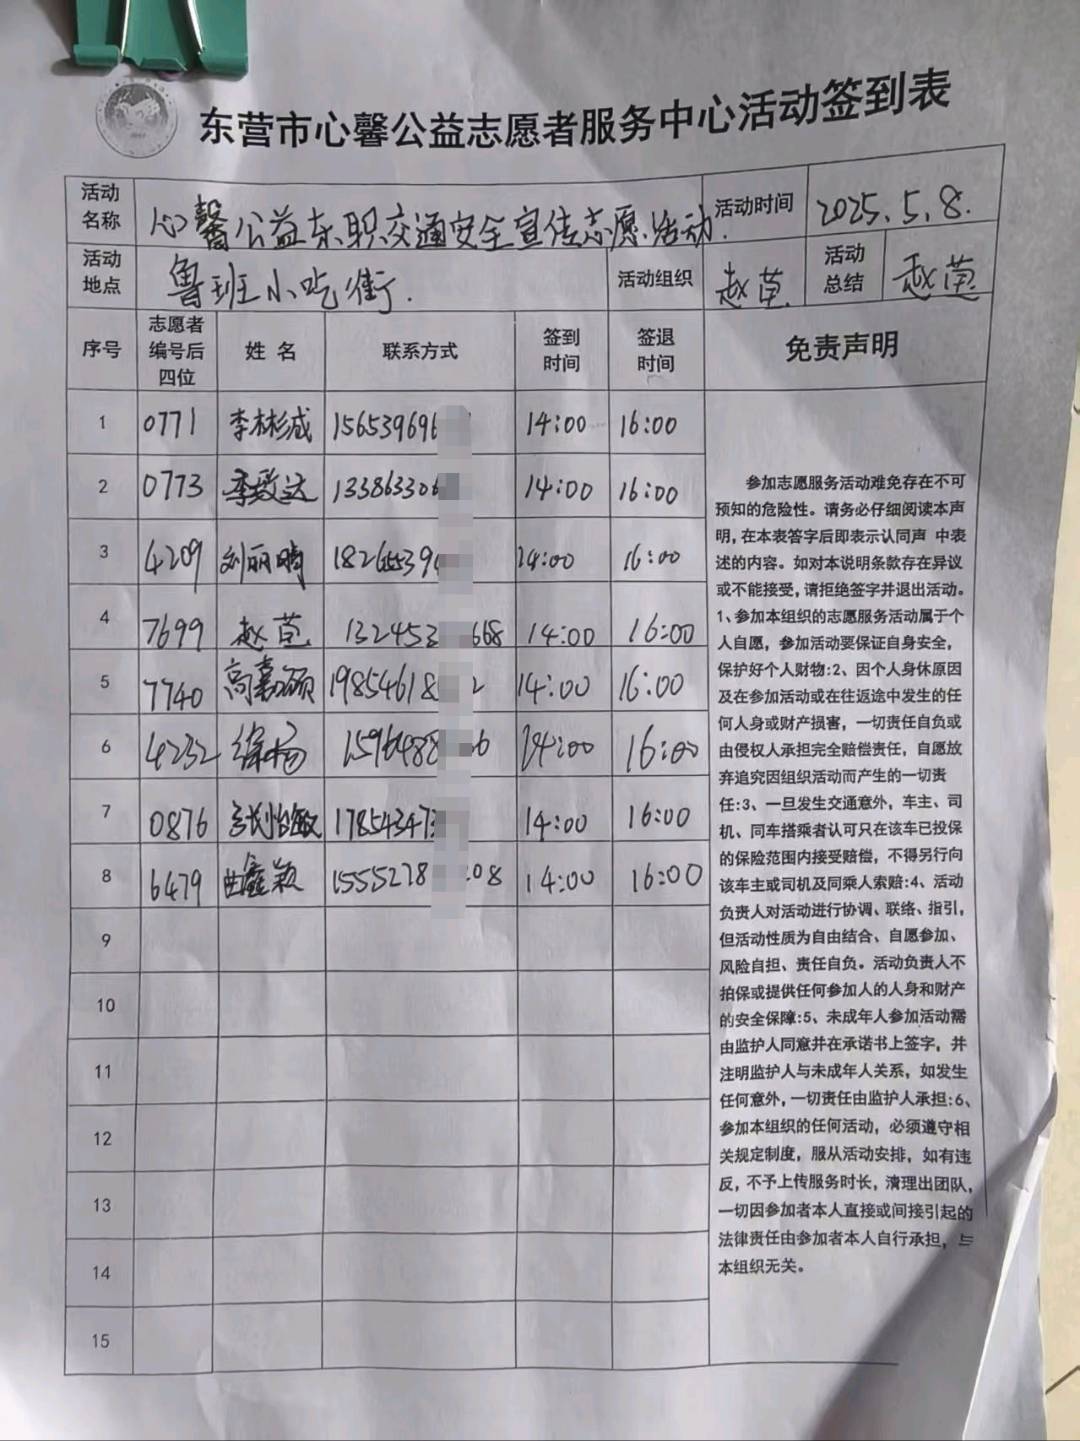 东营市心馨公益志愿者服务中心活动签到表
活动名称 心馨公益东职交通安全宣传志愿活动. 活动时间 2025.5.8.
活动地点 鲁班小吃街. 活动组织 赵苊 活动总结 赵苊
序号 志愿者编号后四位 姓名 联系方式 签到时间 签退时间 免责声明
1 0771 李彬成 156539696 14:00 16:00
2 0773 李致达 133863306 14:00 16:00
3 4209 刘丽晴 1826539 14:00 16:00
4 7699 赵苊 1324533 668 14:00 16:00
5 7740 高嘉硕 19854618 2 14:00 16:00
6 4232 徐杨 15964888 6 14:00 16:00
7 0876 怡敏 17854347 14:00 16:00
8 6479 曲鑫颖 1555278 08 14:00 16:00
9
10
11
12
13
14
15
参加志愿服务活动难免存在不可
预知的危险性。请务必仔细阅读本声
明,在本表答字后即表示认同声 中表
述的内容。如对本说明条款存在异议
或不能接受,请拒绝签字并退出活动。
1、参加本组织的志愿服务活动属于个
人自愿，参加活动要保证自身安全，
保护好个人财物:2、因个人身休原因
及在参加活动或在往返途中发生的任
何人身或财产损害，一切责任自负或
由侵权人承担完全赔偿责任，自愿放
弃追究因组织活动而产生的一切责
任:3、一旦发生交通意外，车主、司
机、同车搭乘者认可只在该车已投保
的保险范围内接受赔偿，不得另行向
该车主或司机及同乘人索赔:4、活动
负责人对活动进行协调、联络、指引，
但活动性质为自由结合、自愿参加、
风险自担、责任自负。活动负责人不
拍保或提供任何参加人的人身和财产
的安全保障:5、未成年人参加活动需
由监护人同意并在承诺书上签字，并
注明监护人与未成年人关系，如发生
任何意外，一切责任由监护人承担:6、
参加本组织的任何活动，必须遵守相
关规定制度，服从活动安排，如有违
反，不予上传服务时长，清理出团队，
一切因参加者本人直接或间接引起的
法律责任由参加者本人自行承担，与
本组织无关。